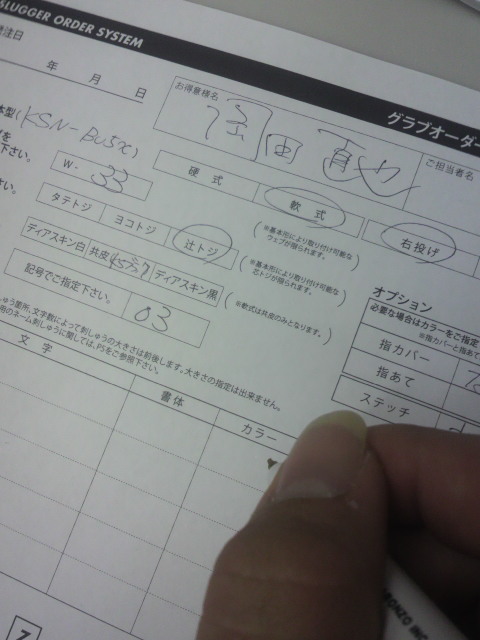 SLUGGER ORDER SYSTEM
注日
年 月 日
グラブオーダー
お得意様名
ご担当者名
本型(KSN-
W- 33
硬式 軟式 右投げ
タテトジ ヨコトジ 辻トジ
(※基本形により取り付け可能な
ウェブが限られます。)
ディアスキン白 共皮 ディアスキン黒
(※基本形により取り付け可能な
芯トジが限られます。)
(※軟式は共皮のみとなります。)
記号でご指定下さい。 03
オプション
必要な場合はカラーをご指定
※指カバーと指あて
指カバー
指あて
ステッチ
しゅう箇所、文字数によって刺しゅうの大きさは前後します。大きさの指定は出来ません。
のネーム刺しゅうに関しては、P5をご参照下さい。
文字 書体 カラー